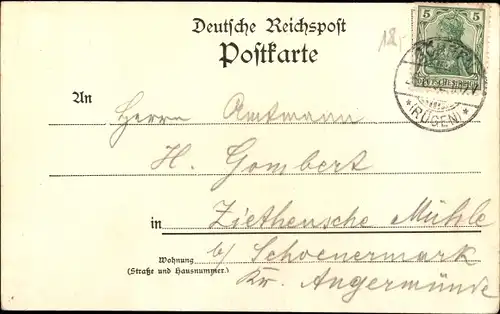 Deutsche Reichspost
Postkarte
18,-
5 5
DEUTSCHES REICH
* (RÜGEN) *
An Herrn Amtmann
H. Gombert
in Ziethensche Mühle
Wohnung b/ Schoenermark
(Straße und Hausnummer.)
Kr. Angermünde